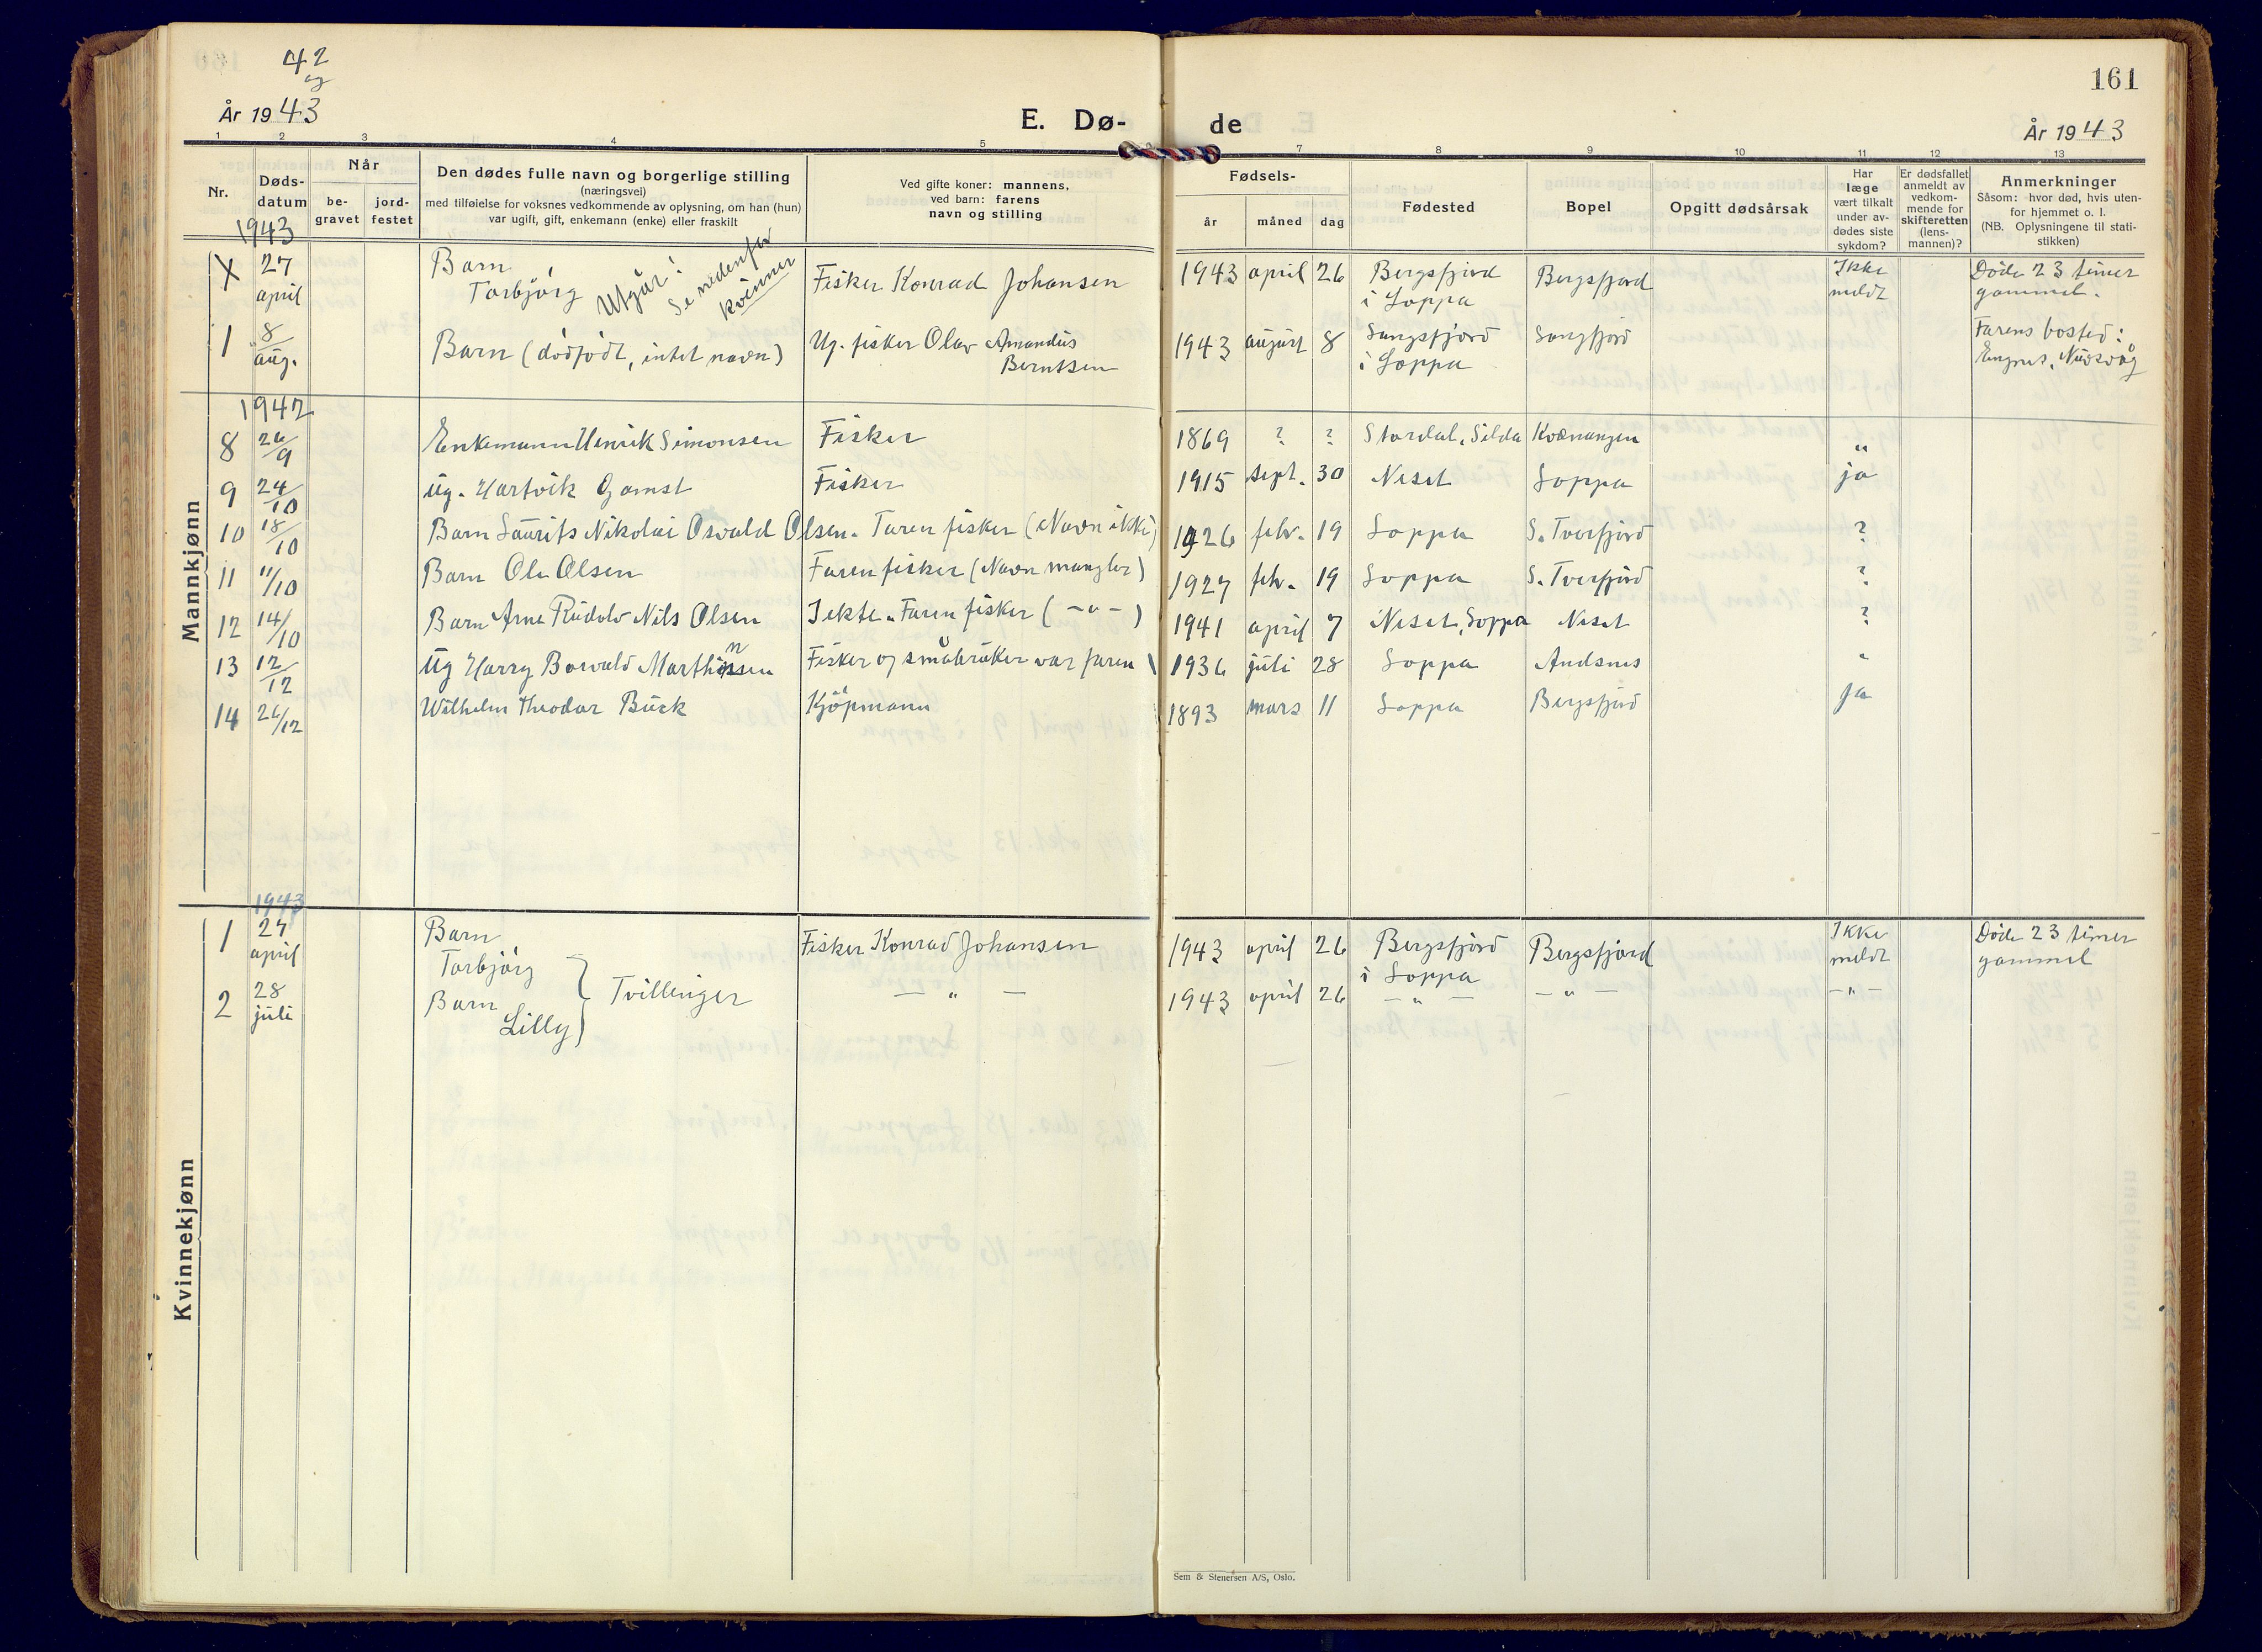 42
og
År 1943
E. Dø-
de
161
År 1943
1 2 3 4 5 7 8 9 10 11 12 13
Nr.
Døds-
datum
Når
be-
gravet
jord-
festet
Den dødes fulle navn og borgerlige stilling
(næringsvei)
med tilføielse for voksnes vedkommende av oplysning, om han (hun)
var ugift, gift, enkemann (enke) eller fraskilt
Ved gifte koner: mannens,
ved barn: farens
navn og stilling
Fødsels-
år måned dag
Fødested
Bopel
Opgitt dødsårsak
Har
læge
vært tilkalt
under av-
dødes siste
sykdom?
Er dødsfallet
anmeldt av
vedkom-
mende for
skifteretten
(lens-
mannen)?
Anmerkninger
Såsom: hvor død, hvis uten-
for hjemmet o. l.
(NB. Oplysningene til stati-
stikken)
Mannkjønn
1943
X 27 april Barn Torbjörg Utgår! Se nedenfor kvinner Fisker Konrad Johansen 1943 april 26 Bergsfjord i Loppa Bergsfjord Ikke meldt Döde 23 timer gammel.
1 8/aug. Barn (dödfödt, intet navn) Ug. fisker Olav Amandus Berntsen 1943 august 8 Langfjord i Loppa Langfjord Farens bosted:
1942
8 26/9 Enkemann Henrik Simonsen Fisker 1869 ? ? Stordal, Silda Kvænangen "
9 24/10 ug. Hartvik Gamst Fisker 1915 sept. 30 Neset Loppa ja
10 18/10 Barn Laurits Nikolai Osvald Olsen. Faren fisker (Navn ikke) 1926 febr. 19 Loppa S. Tverfjord ?
11 11/10 Barn Ole Olsen Faren fisker (Navn mangler) 1927 febr. 19 Loppa S. Tverfjord ?
12 14/10 Barn Arne Rudolv Nils Olsen Jekte. Faren fisker ( - " - ) 1941 april 7 Neset, Loppa Neset ?
13 12/12 Ug Harry Borvald Marthinssen Fisker og småbruker var faren 1936 juli 28 Loppa Andsnes "
14 26/12 Wilhelm Theodor Buck Kjöpmann 1893 mars 11 Loppa Bergsfjord Ja
Kvinnekjønn
1943
1 27 april Barn Torbjörg } Tvillinger Fisker Konrad Johansen 1943 april 26 Bergsfjord i Loppa Bergsfjord Ikke meldt Döde 23 timer gammel
2 28 juli Barn Lilly — " — 1943 april 26 — " — — " — — " —
Sem & Stenersen A/S, Oslo.